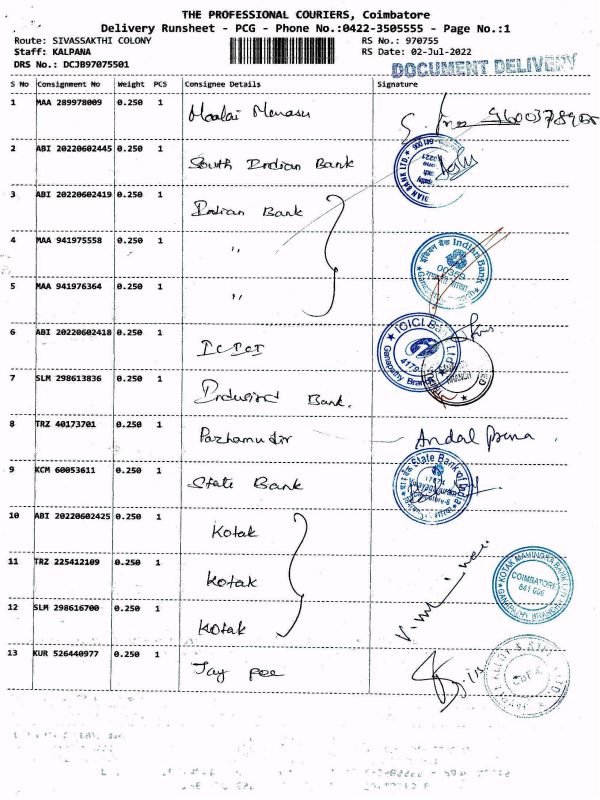 THE PROFESSIONAL COURIERS, Coimbatore
Delivery Runsheet - PCG - Phone No.:0422-3505555 - Page No.:1
Route: SIVASSAKTHI COLONY RS No.: 970755
Staff: KALPANA RS Date: 02-Jul-2022
DRS No.: DCJB97075501
DOCUMENT DELIVERY
S No Consignment No Weight PCS Consignee Details Signature
1 MAA 289978009 0.250 1 Maalai
2 ABI 20220602445 0.250 1 South Indian Bank
3 ABI 20220602419 0.250 1 Indian Bank
4 MAA 941975558 0.250 1 "
5 MAA 941976364 0.250 1 "
6 ABI 20220602418 0.250 1 ICICI
7 SLM 298613836 0.250 1 Indusind Bank.
8 TRZ 40173701 0.250 1 Pazhamudir Andal
9 KCM 60053611 0.250 1 State Bank
10 ABI 20220602425 0.250 1 Kotak
11 TRZ 225412109 0.250 1 Kotak
12 SLM 298616700 0.250 1 Kotak
13 KUR 526440977 0.250 1 Jay pee
DIAN BANK LTD.
Indian Bank
ICICI Bank Ltd
Ganapathy Branch
State Bank of
KOTAK MAHINDRA BANK
COIMBATORE
641 006
GANAPATHY BRANCH